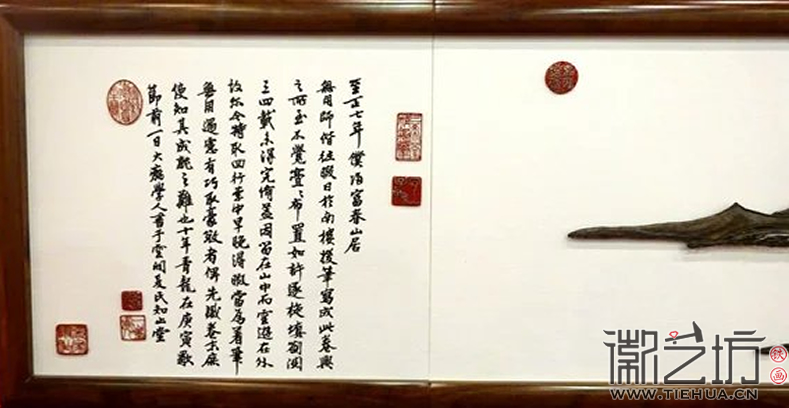 至正七年僕歸富春山居
無用師偕往暇日於南樓援筆寫成此卷興
之所至不覺亹亹布置如許逐旋填劄閱
三四載未得完備蓋因留在山中而雲遊在外
故尔今特取回行李中早晚得暇當為着筆
無用過慮有巧取豪敚者俾先識卷末庶
使知其成就之難也十年青龍在庚寅歜
節前一日大癡學人書于雲間夏氏知止堂
徽艺坊
铁画
WWW.TIEHUA.CN